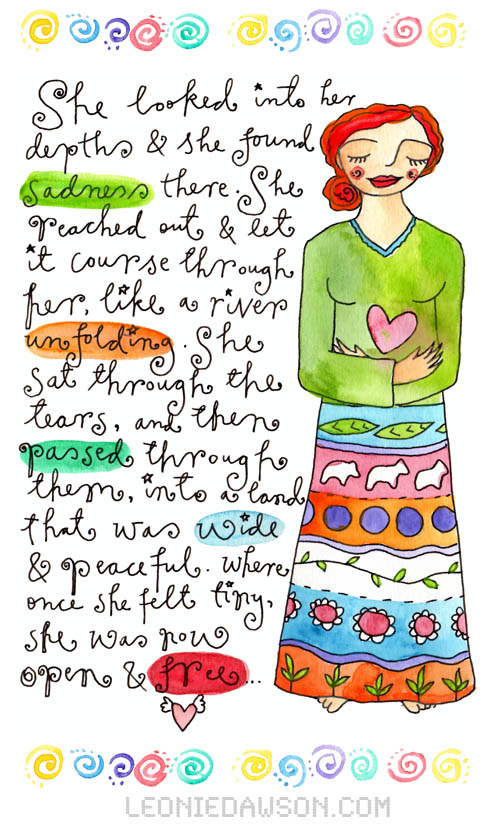 She looked into her
depths & she found
sadness there. She
reached out & let
it course through
her, like a river
unfolding. She
sat through the
tears, and then
passed through
them, into a land
that was wide
& peaceful. where
once she felt tiny,
she was now
open & free...
LEONIEDAWSON.COM